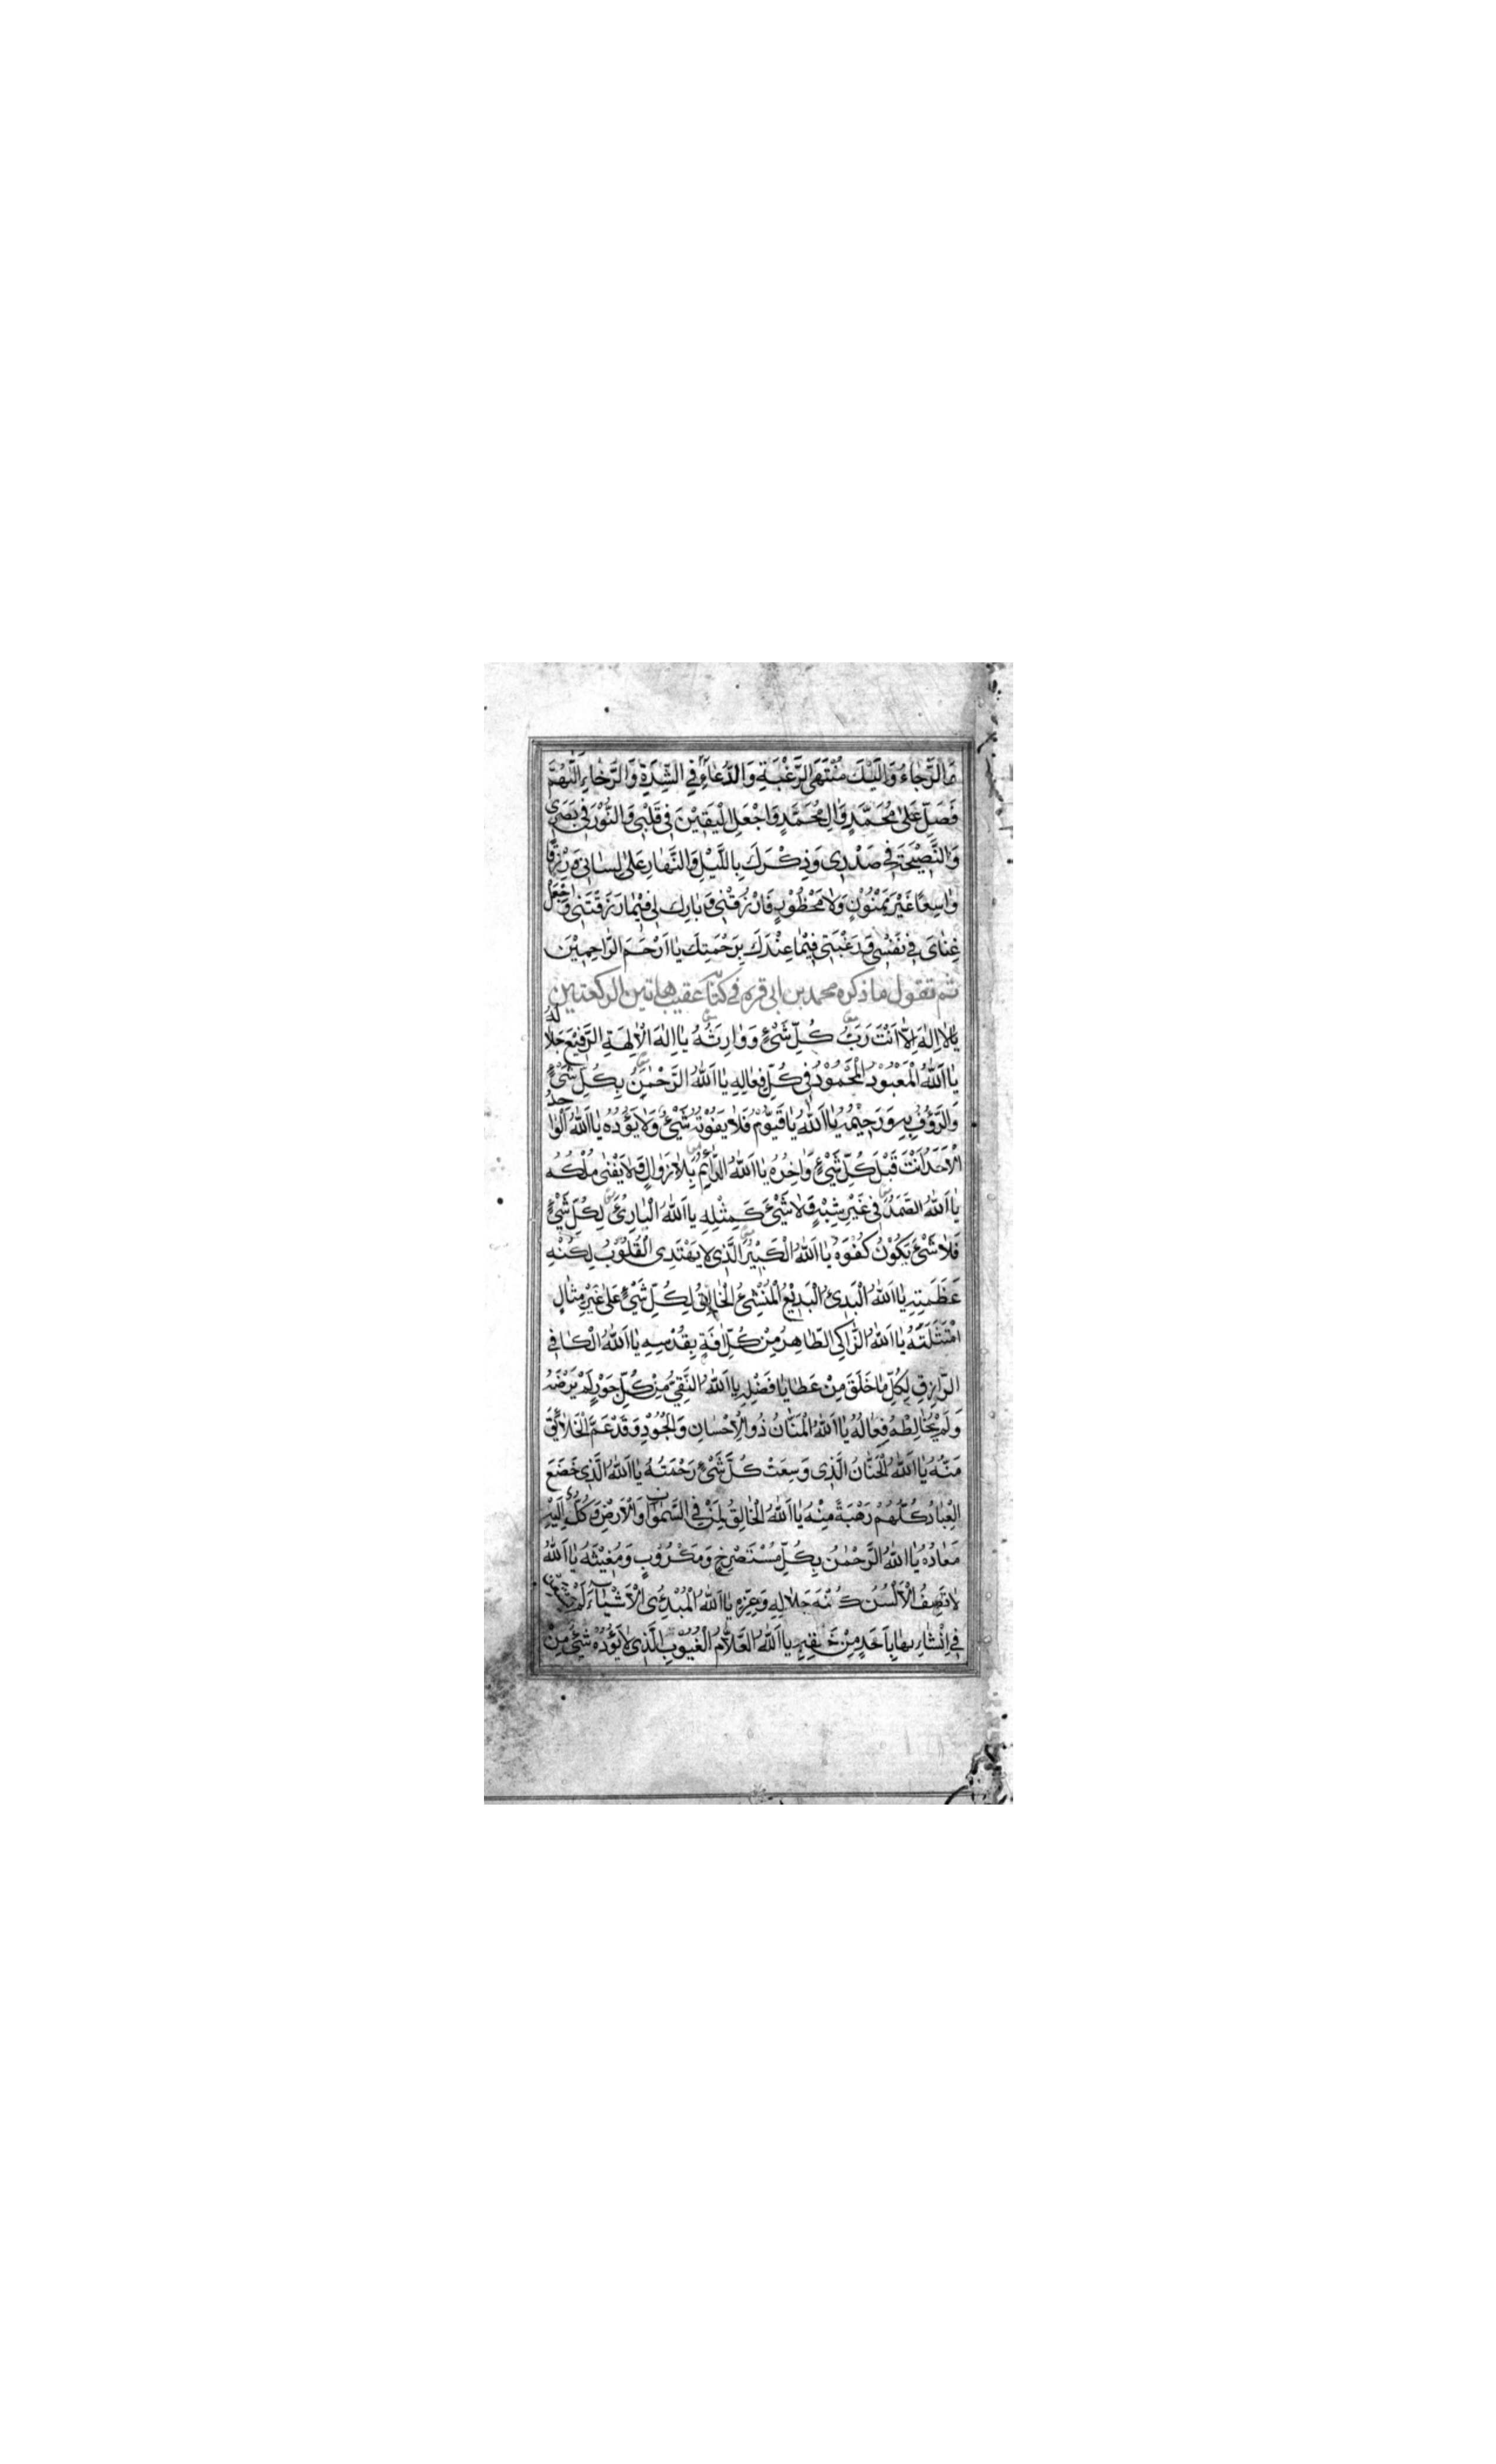 وَالرَّجَاءُ وَاِلَيْكَ مُنْتَهَى الرَّغْبَةِ وَالدُّعَاءِ فِي الشِّدَّةِ وَالرَّخَاءِ اَللّٰهُمَّ
فَصَلِّ عَلٰى مُحَمَّدٍ وَاٰلِ مُحَمَّدٍ وَاجْعَلِ الْيَقِيْنَ فِى قَلْبِى وَالنُّوْرَ فِى بَصَرِى
وَالنَّصِيْحَةَ فِى صَدْرِى وَذِكْرَكَ بِاللَّيْلِ وَالنَّهَارِ عَلٰى لِسَانِى وَرِزْقًا
وَاسِعًا غَيْرَ مَمْنُوْنٍ وَلَا مَحْظُوْرٍ فَارْزُقْنِى وَبَارِك لِى فِيْمَا رَزَقْتَنِى وَاجْعَلْ
غِنَاىَ فِى نَفْسِى وَرَغْبَتِى فِيْمَا عِنْدَكَ بِرَحْمَتِكَ يَا اَرْحَمَ الرَّاحِمِيْنَ
ثم تقول ما ذكره محمد بن ابى قره فى كتابه عقيب هاتين الركعتين
يَا لَا اِلٰهَ اِلَّا اَنْتَ رَبَّ كُلِّ شَىْءٍ وَوَارِثَهُ يَا اِلٰهَ الْاٰلِهَةِ الرَّفِيْعَ جَلَالُهُ
يَا اَللّٰهُ الْمَعْبُوْدُ الْمَحْمُوْدُ فِى كُلِّ فِعَالِهِ يَا اَللّٰهُ الرَّحْمٰنُ بِكُلِّ شَىْءٍ
وَالرَّؤُفُ بِهِ وَرَحِيْمُهُ يَا اَللّٰهُ يَا قَيُّوْمُ فَلَا يَفُوْتُهُ شَىْءٌ وَلَا يَؤُدُهُ يَا اَللّٰهُ الْوَاحِدُ
الْاَحَدُ اَنْتَ قَبْلَ كُلِّ شَىْءٍ وَاٰخِرُهُ يَا اَللّٰهُ الدَّائِمُ بِلَا زَوَالٍ وَلَا يَفْنٰى مُلْكُهُ
يَا اَللّٰهُ الصَّمَدُ فِى غَيْرِ شِبْهٍ وَلَا شَىْءَ كَمِثْلِهِ يَا اَللّٰهُ الْبَارِئُ لِكُلِّ شَىْءٍ
فَلَا شَىْءَ يَكُوْنُ كُفُوَهُ يَا اَللّٰهُ الْكَبِيْرُ الَّذِى لَا يَهْتَدِى الْقُلُوْبُ لِكُنْهِ
عَظَمَتِهِ يَا اَللّٰهُ الْبَدِئُ الْبَدِيْعُ الْمُنْشِئُ الْخَالِقُ لِكُلِّ شَىْءٍ عَلٰى غَيْرِ مِثَالٍ
امْتَثَلْتَهُ يَا اَللّٰهُ الزَّاكِى الطَّاهِرُ مِنْ كُلِّ اٰفَةٍ بِقُدْسِهِ يَا اَللّٰهُ الْكَافِى
الرَّازِقُ لِكُلِّ مَا خَلَقَ مِنْ عَطَايَا فَضْلِهِ يَا اَللّٰهُ النَّقِىُّ مِنْ كُلِّ جَوْرٍ لَمْ يَرْضَهُ
وَلَمْ يُخَالِطْهُ فِعَالُهُ يَا اَللّٰهُ الْمَنَّانُ ذُو الْاِحْسَانِ وَالْجُوْدِ وَقَدْ عَمَّ الْخَلَائِقَ
مَنُّهُ يَا اَللّٰهُ الْحَنَّانُ الَّذِى وَسِعَتْ كُلَّ شَىْءٍ رَحْمَتُهُ يَا اَللّٰهُ الَّذِى خَضَعَ
الْعِبَادُ كُلُّهُمْ رَهْبَةً مِنْهُ يَا اَللّٰهُ الْخَالِقُ لِمَنْ فِى السَّمٰوَاتِ وَالْاَرْضِ وَكُلٌّ اِلَيْهِ
مَعَادُهُ يَا اَللّٰهُ الرَّحْمٰنُ بِكُلِّ مُسْتَصْرِخٍ وَمَكْرُوْبٍ وَمُغِيْثُهُ يَا اَللّٰهُ
لَا تَصِفُ الْاَلْسُنُ كُنْهَ جَلَالِهِ وَعِزِّهِ يَا اَللّٰهُ الْمُبْدِئُ الْاَشْيَاءَ لَمْ يَسْتَعِنْ
فِى اِنْشَائِهَا بِاَحَدٍ مِنْ خَلْقِهِ يَا اَللّٰهُ الْعَلَّامُ الْغُيُوْبِ الَّذِى لَا يَؤُدُهُ شَىْءٌ مِنْ